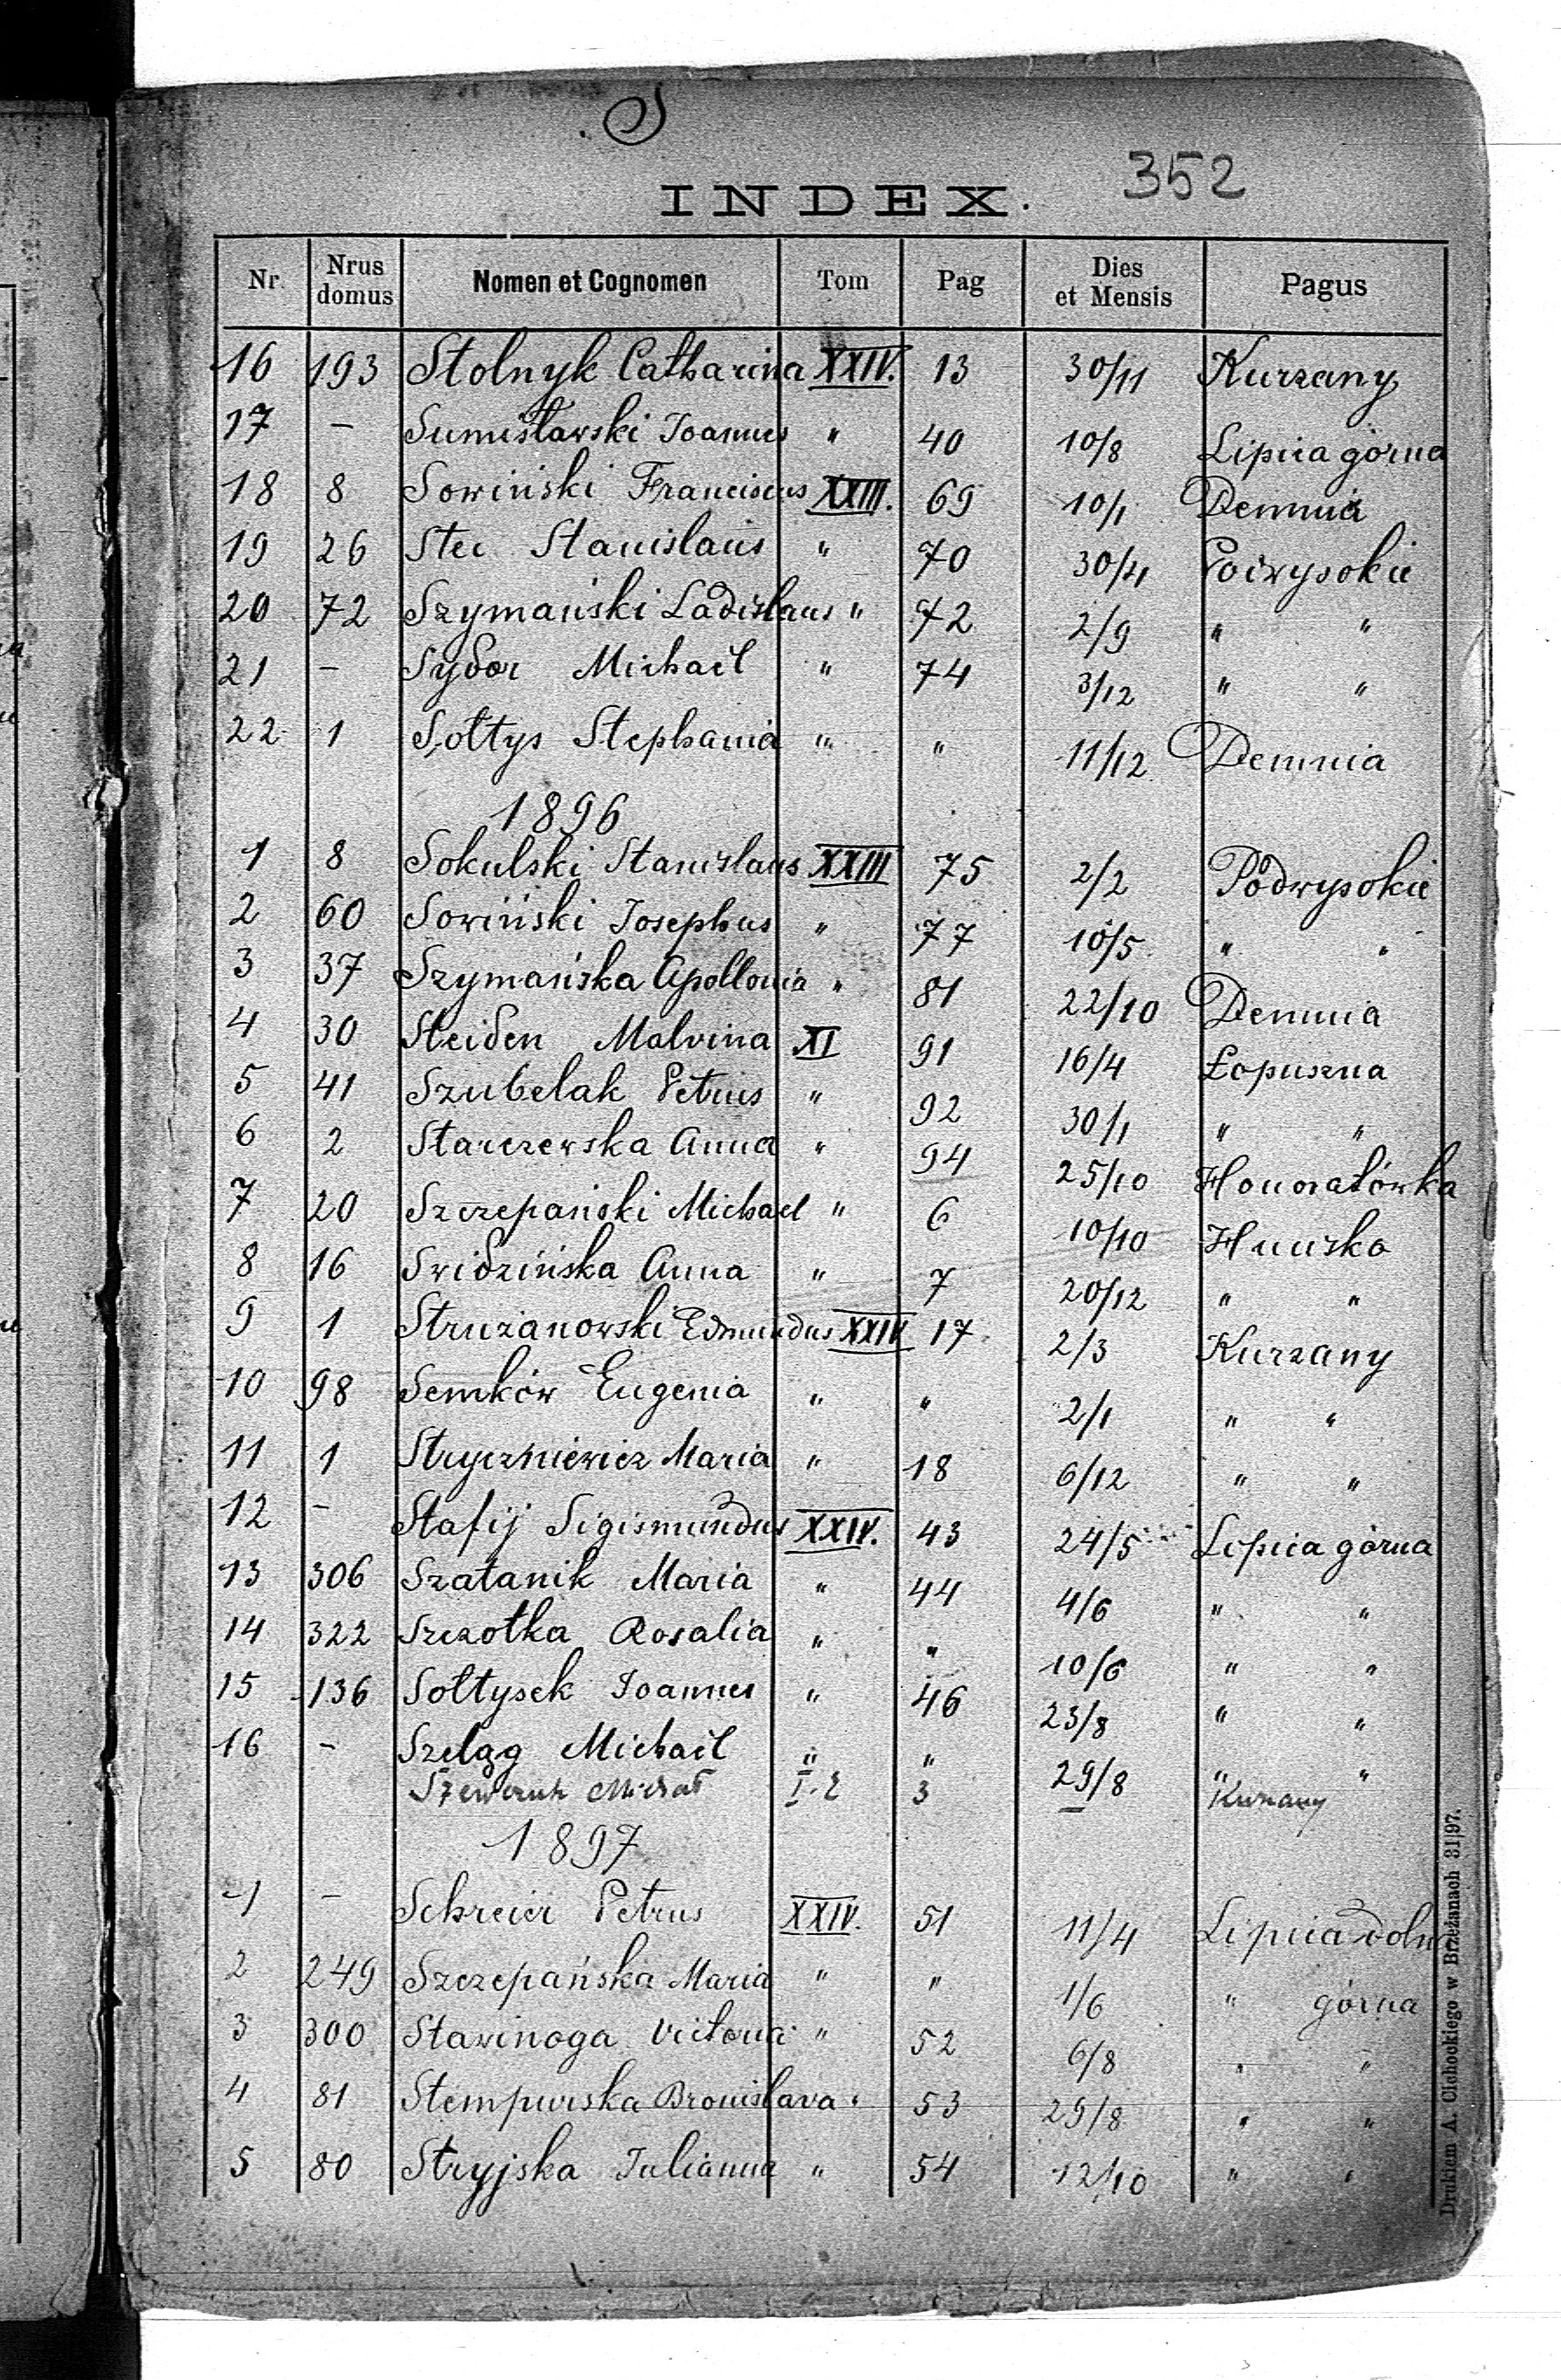 S
352
INDEX.
Nr. Nrus domus Nomen et Cognomen Tom Pag Dies et Mensis Pagus
16 193 Stolnyk Catharina XXIV. 13 30/11 Kurzany
17 – Sumisławski Joannes " 40 10/8 Lipica górna
18 8 Sowiński Franciscus XXIII. 69 10/1 Demnia
19 26 Stec Stanislaus " 70 30/4 Podwysokie
20 72 Szymański Ladislaus " 72 2/9 " "
21 – Sydor Michaël " 74 3/12 " "
22 1 Sołtys Stephania " " 11/12 Demnia
1896
1 8 Sokulski Stanislaus XXIII 75 2/2 Podwysokie
2 60 Sowiński Josephus " 77 10/5 " "
3 37 Szymańska Apollonia " 81 22/10 Demnia
4 30 Steiden Malvina XI 91 16/4 Łopuszna
5 41 Szubelak Petrus " 92 30/1 " "
6 2 Starczewska Anna " 94 25/10 Honoratówka
7 20 Szczepański Michael " 6 10/10 Hucisko
8 16 Swidzińska Anna " 7 20/12 " "
9 1 Strużanowski Edmundus XXIV 17 2/3 Kurzany
10 98 Semków Eugenia " " 2/1 " "
11 1 Stryczniewicz Maria " 18 6/12 " "
12 – Stafij Sigismundus XXIV. 43 24/5 Lipica górna
13 306 Szatanik Maria " 44 4/6 " "
14 322 Szczotka Rosalia " " 10/6 " "
15 136 Sołtysek Joannes " 46 23/8 " "
16 – Szeląg Michaël " " 29/8 " "
Szewczuk Michał I. 2 3 – Kurzany
1897
1 – Schreier Petrus XXIV. 51 11/4 Lipica doln
2 249 Szczepańska Maria " " 1/6 " górna
3 300 Stawinoga Victoria " 52 6/8 " "
4 81 Stempurska Bronislava " 53 29/8 " "
5 80 Stryjska Julianna " 54 12/10 " "
Drukiem A. Cichockiego w Brzeżanach 31|97.